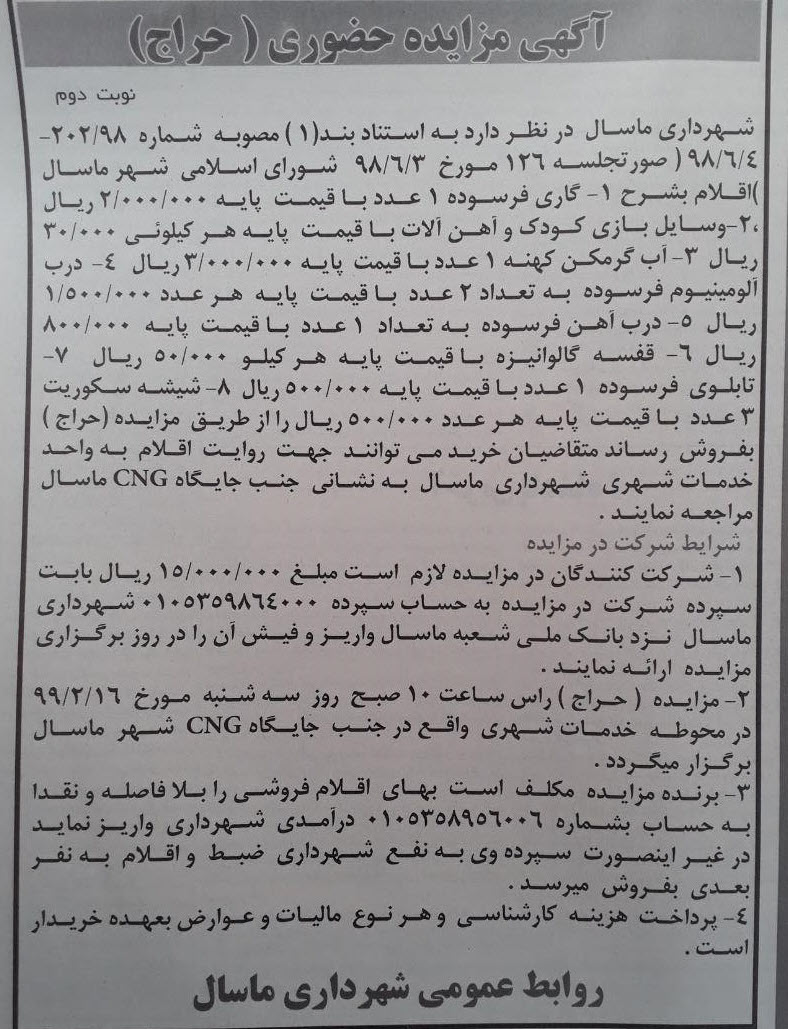 آگهی مزایده حضوری ( حراج)
نوبت دوم
شهرداری ماسال در نظر دارد به استناد بند(۱) مصوبه شماره ۲۰۲/۹۸-
۹۸/۶/۴ ( صورتجلسه ۱۲۶ مورخ ۹۸/۶/۳ شورای اسلامی شهر ماسال
)اقلام بشرح ۱- گاری فرسوده ۱ عدد با قیمت پایه ۲/۰۰۰/۰۰۰ ریال
،۲-وسایل بازی کودک و آهن آلات با قیمت پایه هر کیلوئی ۳۰/۰۰۰
ریال ۳- آب گرمکن کهنه ۱ عدد با قیمت پایه ۳/۰۰۰/۰۰۰ ریال ۴- درب
آلومینیوم فرسوده به تعداد ۲ عدد با قیمت پایه هر عدد ۱/۵۰۰/۰۰۰
ریال ۵- درب آهن فرسوده به تعداد ۱ عدد با قیمت پایه ۸۰۰/۰۰۰
ریال ۶- قفسه گالوانیزه با قیمت پایه هر کیلو ۵۰/۰۰۰ ریال ۷-
تابلوی فرسوده ۱ عدد با قیمت پایه ۵۰۰/۰۰۰ ریال ۸- شیشه سکوریت
۳ عدد با قیمت پایه هر عدد ۵۰۰/۰۰۰ ریال را از طریق مزایده (حراج )
بفروش رساند متقاضیان خرید می توانند جهت روایت اقلام به واحد
خدمات شهری شهرداری ماسال به نشانی جنب جایگاه CNG ماسال
مراجعه نمایند .
شرایط شرکت در مزایده
۱- شرکت کنندگان در مزایده لازم است مبلغ ۱۵/۰۰۰/۰۰۰ ریال بابت
سپرده شرکت در مزایده به حساب سپرده ۰۱۰۵۳۵۹۸۶۴۰۰۰ شهرداری
ماسال نزد بانک ملی شعبه ماسال واریز و فیش آن را در روز برگزاری
مزایده ارائه نمایند .
۲- مزایده ( حراج ) راس ساعت ۱۰ صبح روز سه شنبه مورخ ۹۹/۲/۱۶
در محوطه خدمات شهری واقع در جنب جایگاه CNG شهر ماسال
برگزار میگردد .
۳- برنده مزایده مکلف است بهای اقلام فروشی را بلا فاصله و نقدا
به حساب بشماره ۰۱۰۵۳۵۸۹۵۶۰۰۶ درآمدی شهرداری واریز نماید
در غیر اینصورت سپرده وی به نفع شهرداری ضبط و اقلام به نفر
بعدی بفروش میرسد .
۴- پرداخت هزینه کارشناسی و هر نوع مالیات و عوارض بعهده خریدار
است .
روابط عمومی شهرداری ماسال